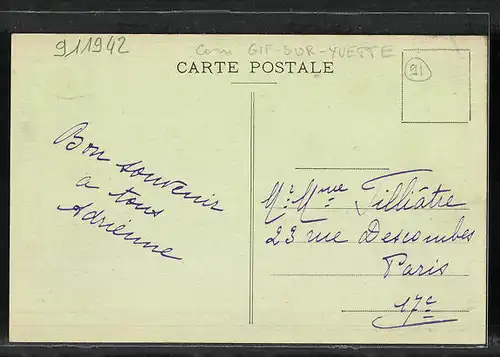 911942
Com GIF-SUR-YVETTE
CARTE POSTALE
91
Bon souvenir
a tous
Adrienne
Mr. Mme Filliâtre
23 rue Descombes
Paris
17e